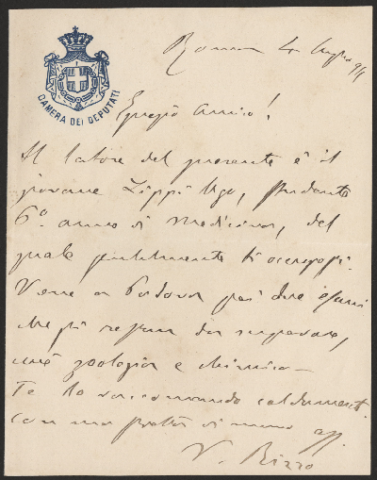 CAMERA DEI DEPUTATI
Roma 4 luglio 94
Egregio Amico!
Il latore del presente è il
giovane Lippi Ugo, studente
6º anno di Medicina, del
quale gentilmente ti occupasti.
Viene a Padova per due esami
che gli restan da superare,
cioè zoologia e chimica —
Te lo raccomando caldamente.
Con una stretta di mano aff.
V. Rizzo